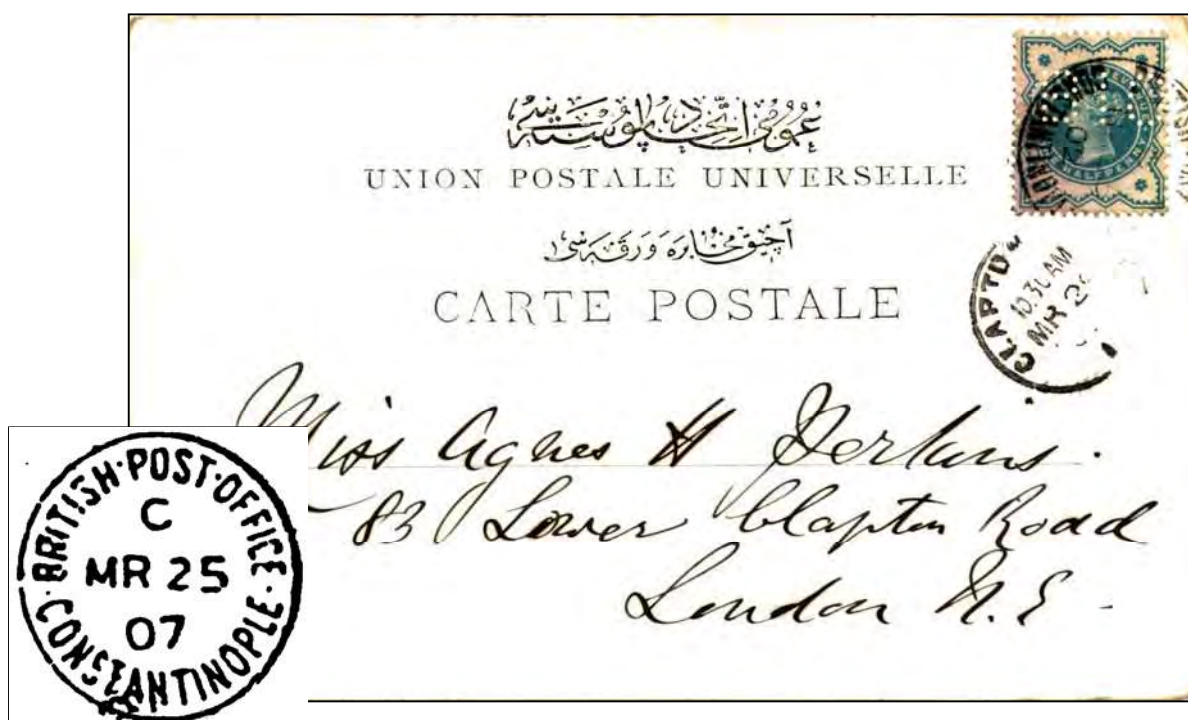 عمومی اتحاد پوسته سی
UNION POSTALE UNIVERSELLE
آچیق مخابره ورقه سی
CARTE POSTALE
HALFPENNY
CLAPTO
10.30 AM
MR 2
Miss Agnes H Perkins.
83 Lower Clapton Road
London N.E.
BRITISH·POST·OFFICE·
C
MR 25
07
CONSTANTINOPLE·